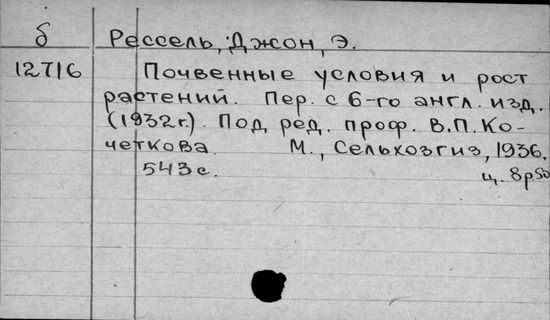 б Рессель, Джон, Э.
12716 Почвенные условия и рост
растений. Пер. с 6-го англ. изд.
(1932г.) Под ред. проф. В.П.Ко-
четкова М., Сельхозгиз, 1936.
543 с. ц. 8р50